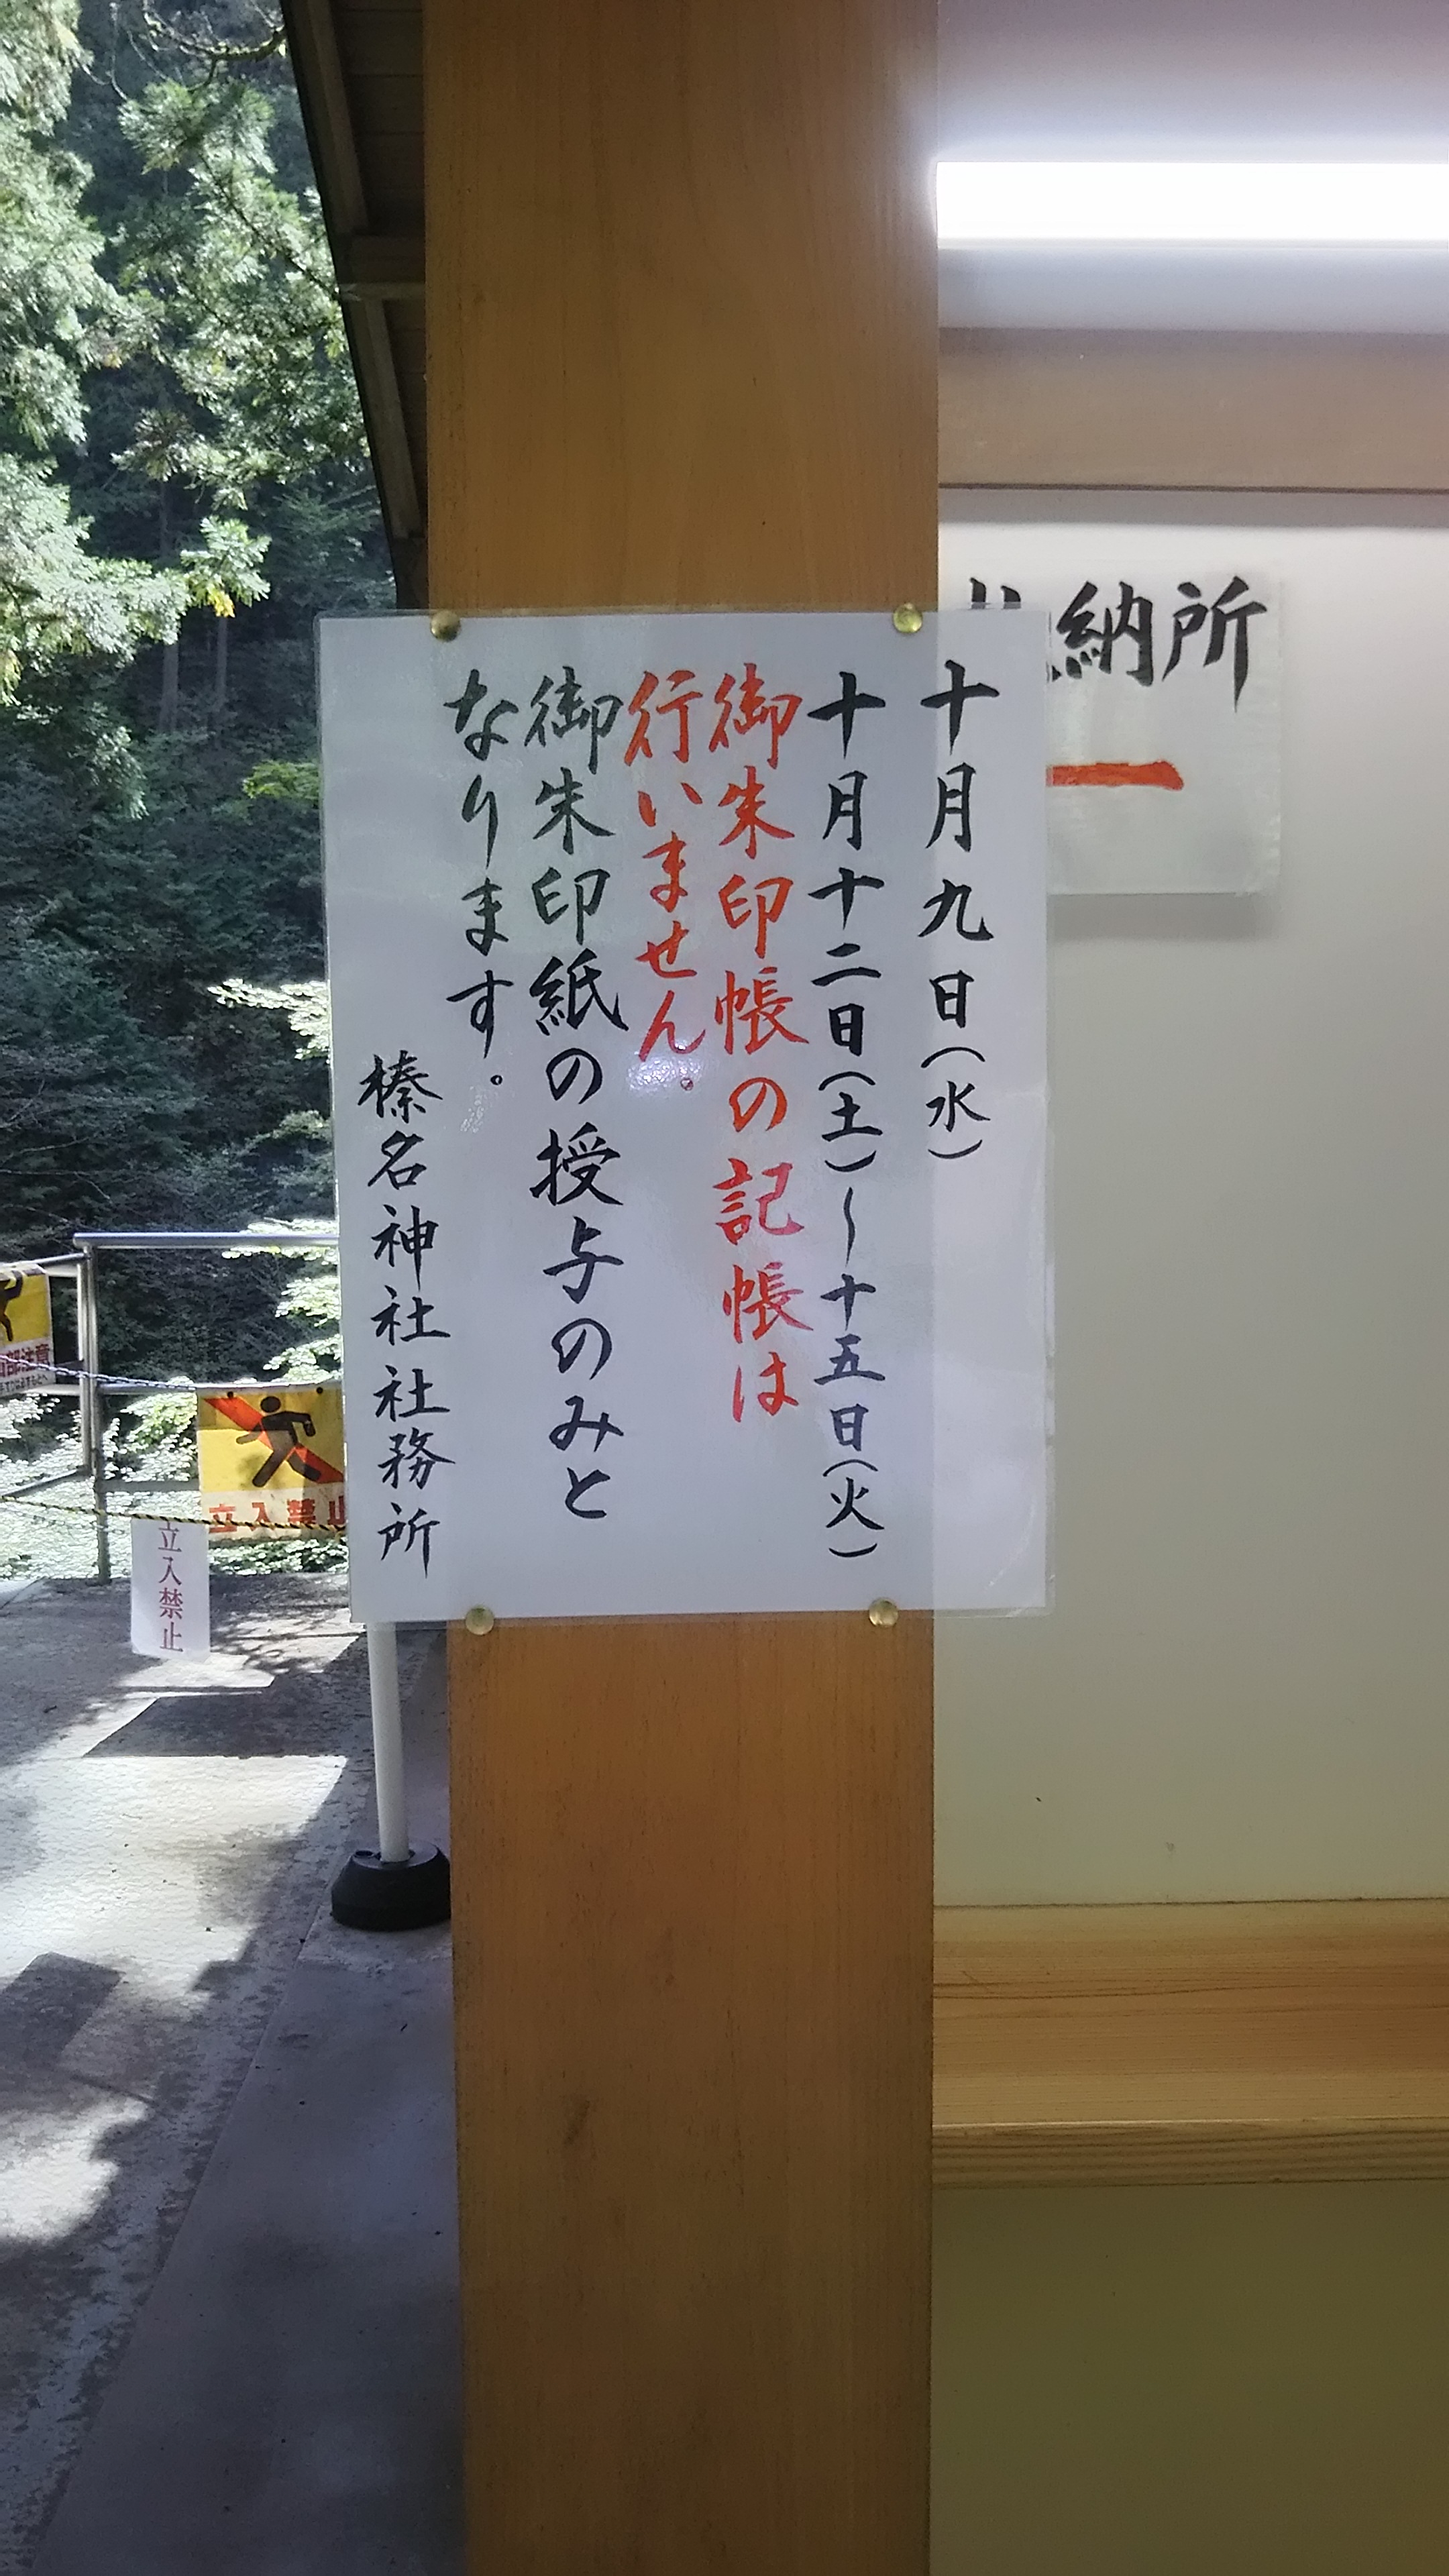 十月九日（水）
十月十二日（土）〜十五日（火）
御朱印帳の記帳は
行いません。
御朱印紙の授与のみと
なります。
榛名神社社務所
納所
立入禁止
立入禁止
部注意